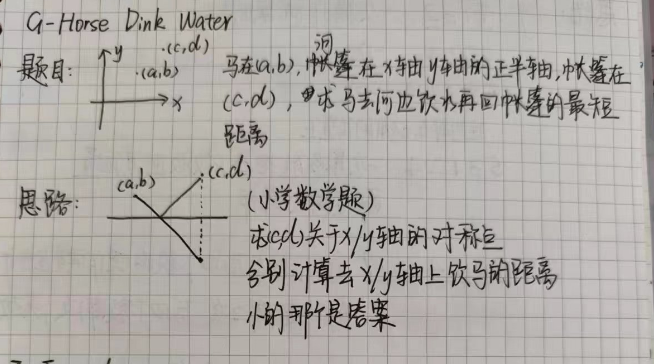 G-Horse Dink Water
题目:
y
(c,d)
(a,b)
x
马在(a,b),河在x轴y轴的正半轴,帐篷在
(c,d),求马去河边饮水再回帐篷的最短
距离
思路:
(a,b)
(c,d)
(小学数学题)
求(c,d)关于x/y轴的对称点
分别计算去x/y轴上饮马的距离
小的那个是答案